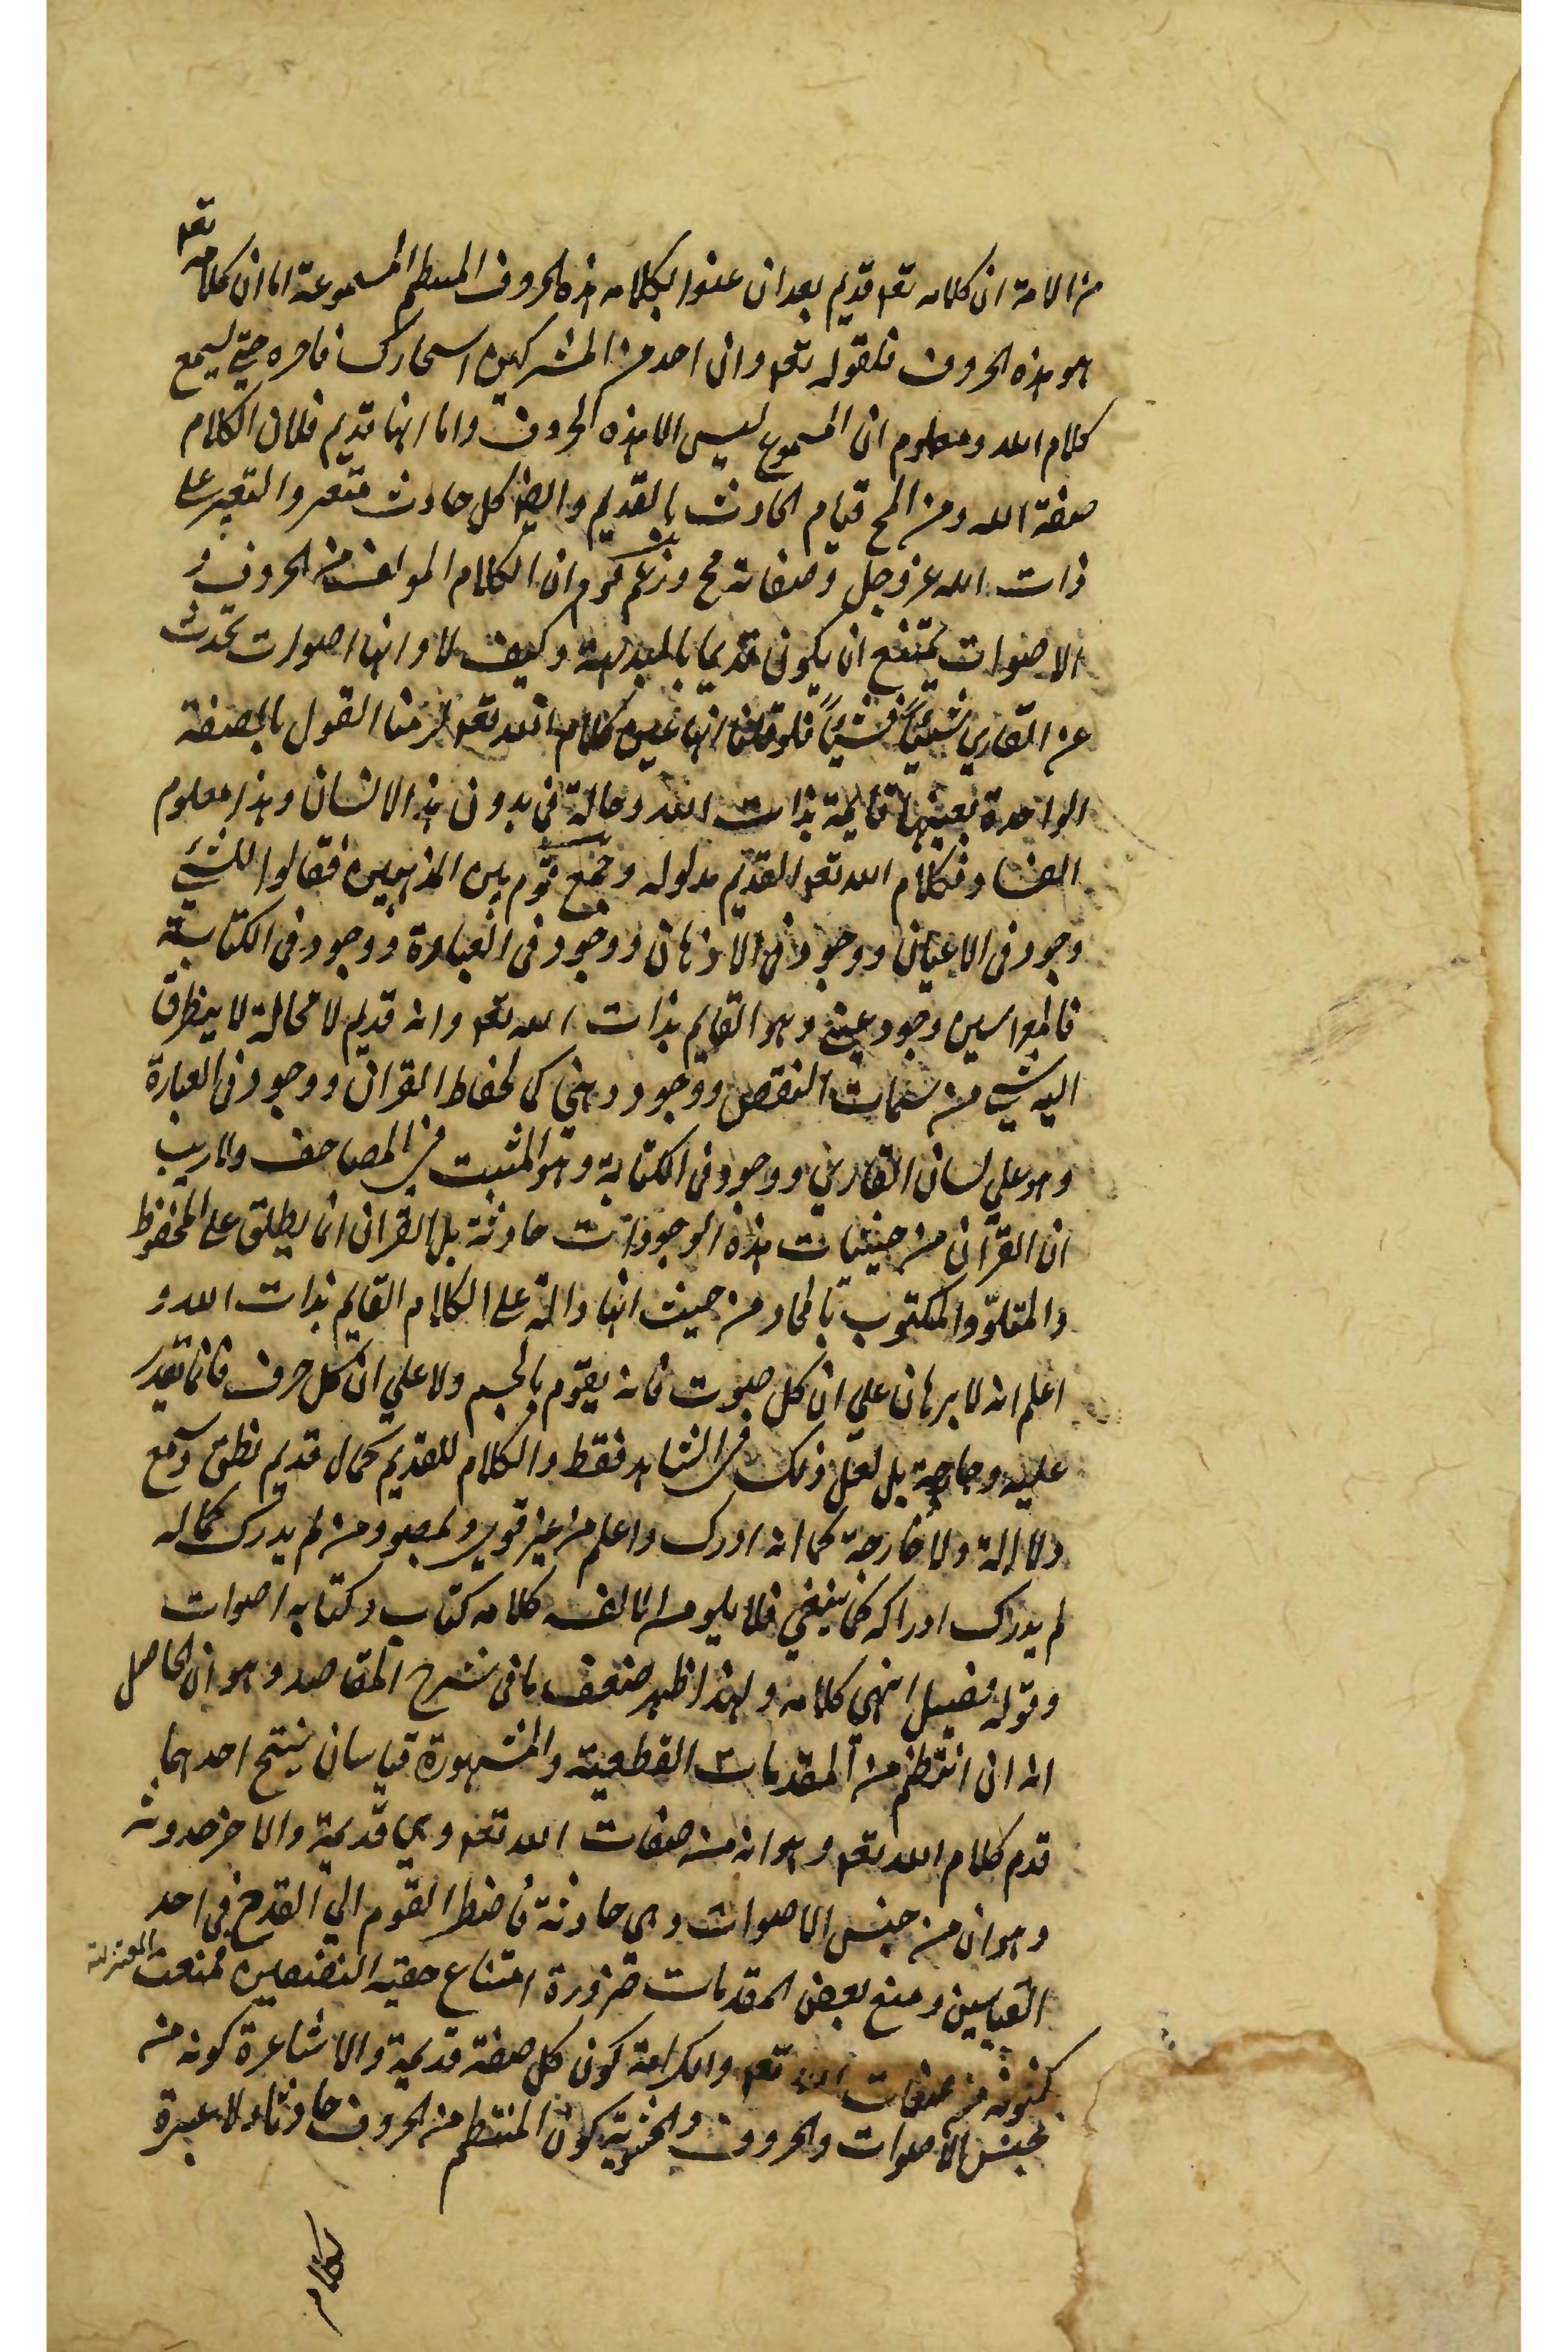 من الامة ان كلامه تعہ قديم بعد ان عنوا بكلامه هذه الحروف المنتظم المسموعة اما ان كلامه تعہ
هو هذه الحروف فلقوله تعہ وان احد من المشركين استجارك فاجره حتي يسمع
كلام الله ومعلوم ان المسموع ليس الا هذه الحروف واما انها قديم فلان الكلام
صفة الله ومن المح قيام الحادث بالقديم وايضا كل حادث متغير والتغير علي
ذات الله عز وجل وصفاته مح وزعم قوم ان الكلام المولف من الحروف و
الاصوات يمتنع ان يكون قديما بالبديهة وكيف لا وانها اصوات تحدث
عن القاري شيئاً فشيئاً فلو قلنا انها عين كلام الله تعہ لزمنا القول بالصفة
الواحدة بعينها قايمة بذات الله وحالة في بدون هذا الانسان وهذا معلوم
الفساد فكلام الله تعہ القديم مدلوله وجمع قوم بين المذهبين فقالوا للشي
وجود في الاعيان ووجود في الاذهان ووجود في العبارة ووجود في الكتابة
وجود عيني وهو القايم بذات الله تعہ وانه قديم لا محالة لا يتطرق
اليه شي من سمات النقص ووجود ذهني كما لحفاظ القران ووجود في العبارة
وهو علي لسان القاري ووجود في الكتابة وهو المثبت في المصاحف ولا ريب
ان القرآن من حيثيات هذه الوجودات حادثة بل القران انما يطلق علي المحفوظ
والمتلوّ والمكتوب بالمجاز من حيث انها دالة علي الكلام القايم بذات الله و
اعلم انه لا برهان علي ان كل صوت فانه يقوّم بالجسم ولا علي ان كل حرف فانما تقدر
عليه بل لعل ذلك في الشاهد فقط والكلام للقديم كمال قديم نطق وسمع
ولا الة ولا خارجة كما انه ادرك واعلم من غير قوي ومن لم يدرك كماله
لم يدرك ادراكه كما ينبغي فلا كلامه كتاب وكتابه اصوات
وقوله فصل انتهي كلامه ولهذا ظهر ضعف ما في شرح المقاصد وهو ان الحاصل
انه ان انتظم من المقدمات القطعية والمشهورة قياسان ينتج احدهما
قدم كلام الله تعہ وهو انه من صفات الله تعہ وهي قديمة والاخر حدوثه
وهو ان من جنس الاصوات وهي حادثة فاضطر القوم الي القدح في احد
القياسين ومنع بعض المقدمات ضرورة امتناع حقية النقيضين فمنعت المعتزلة
كونه من صفات الله تعہ والكرامة كون كل صفة قديمة والاشاعرة كونه من
جنس الاصوات والحروف والحشوية كون المنتظم من الحروف حادثا ولا عبرة
بكلام